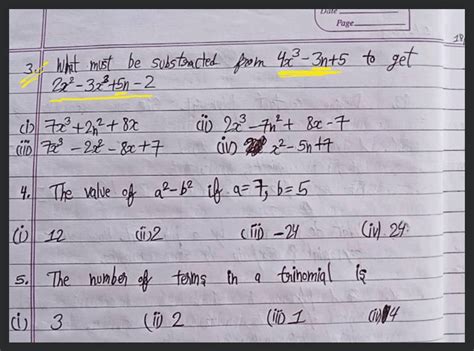 Date
Page
3. What must be substracted from 4x³-3n+5 to get
2x²-3x³+5n-2
(i) 7x³+2n²+8x (ii) 2x³-7n²+8x-7
(iii) 7x³-2x²-8x+7 (iv) x²-5n+7
4. The value of a²-b² if a=7, b=5
(i) 12 (ii) 2 (iii) -24 (iv) 24
5. The number of terms in a trinomial is
(i) 3 (ii) 2 (iii) 1 (iv) 4